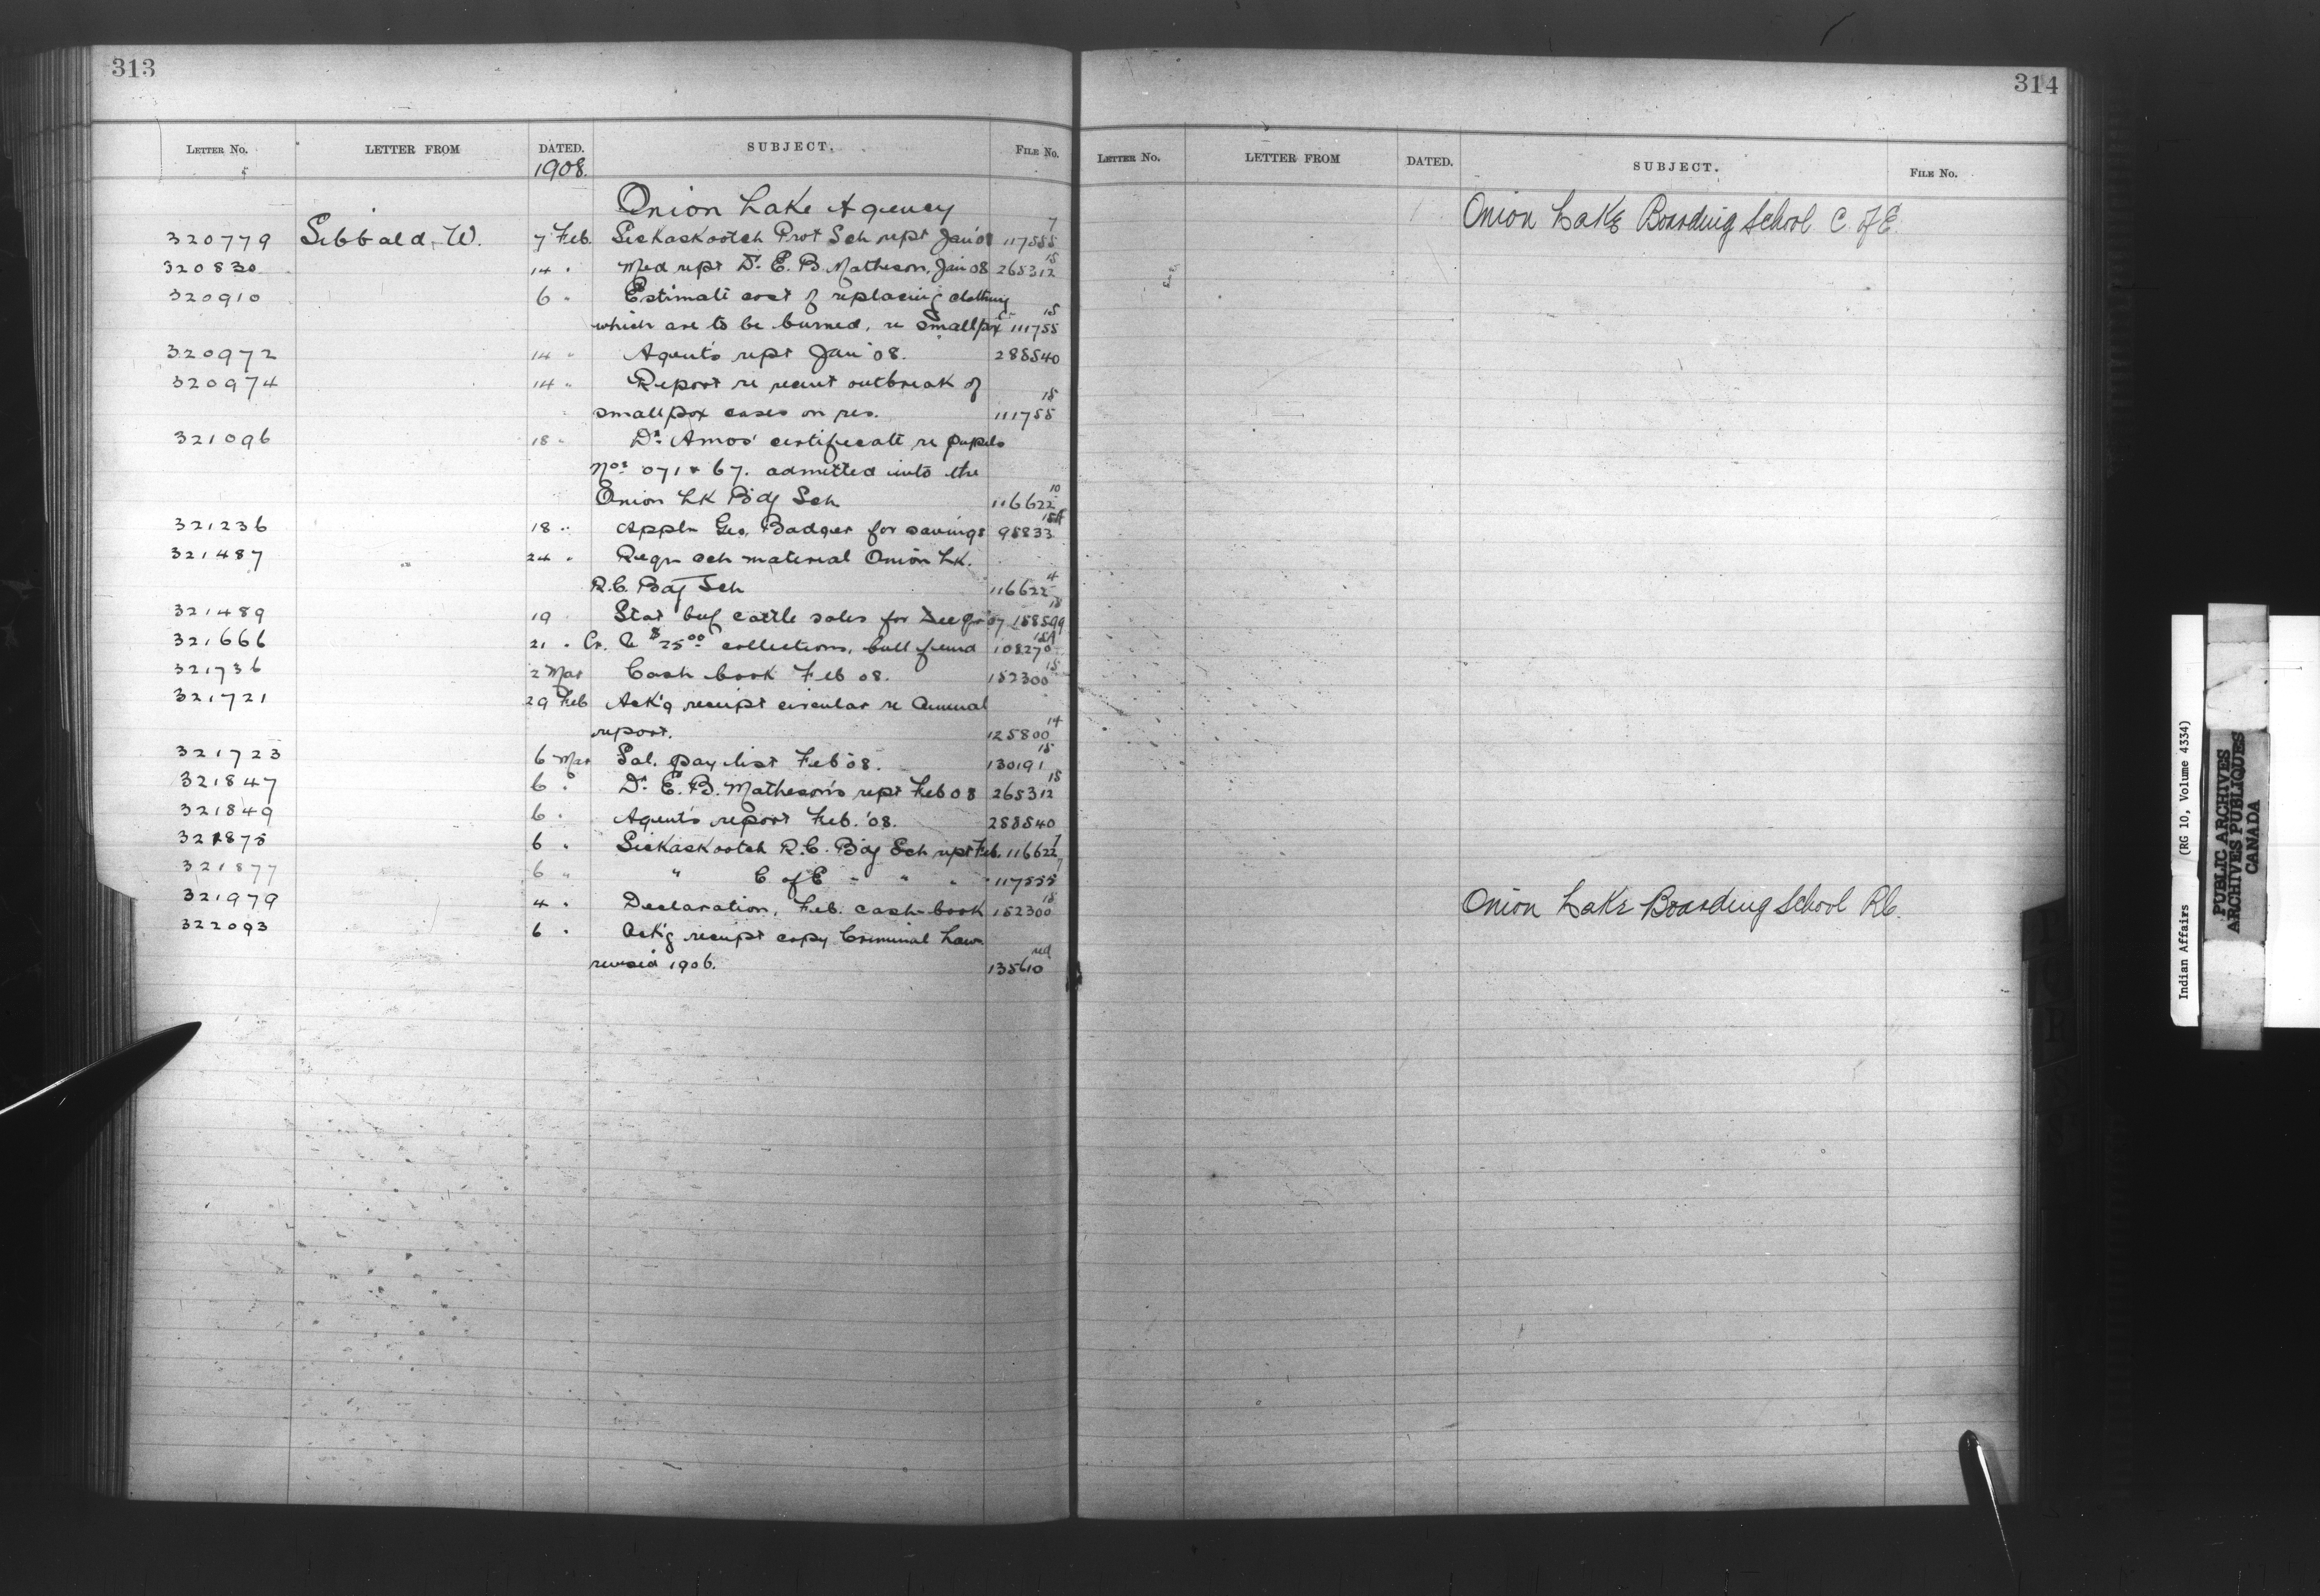 313
LETTER NO. LETTER FROM DATED. SUBJECT. FILE NO.
1908.
Onion Lake Agency
320779 Sibbald, W. 7 Feb. Seekaskootch Prot Sch rept Jan '08 117555 7
320830 14 " Med rept Dr. E. B. Matheson, Jan 08 265312 15
320910 6 " Estimate cost of replacing clothing
which are to be burned, re smallpox 111755 15
320972 14 " Agent's rept Jan '08. 285540
320974 14 " Report re recent outbreak of
smallpox cases on res. 111755 15
321096 18 " Dr. Amos' certificate re pupils
Nos. 071 & 67. admitted into the
Onion Lk Bdg Sch 116622 10
321236 18 " Appln Geo. Badger for savings 95833 15A
321487 24 " Reqn sch material Onion Lk.
R.C. Bdg Sch 116622 4
321489 19 Stat beef cattle sales for 07 158599 15
321666 21 " Cr. $25.00 collections, bull fund 108270 15A
321736 2 Mar Cash book Feb 08. 152300 15
321721 29 Feb Ack'g receipt circular re Annual
report. 125800 14
321723 6 Mar Sal. pay list Feb '08. 130191 15
321847 6 " Dr. E. B. Matheson's rept Feb 08 265312 15
321849 6 " Agent's report Feb. '08. 285540
321875 6 " Seekaskootch R.C. Bdg Sch rept Feb. 116622 7
321877 6 " " C. of E " " " " 117555 7
321979 4 " Declaration, Feb. cash-book 152300 15
322093 6 " Ack'g receipt copy Criminal Law
revised 1906. 135610 red
314
LETTER NO. LETTER FROM DATED. SUBJECT. FILE NO.
Onion Lake Boarding School C. of E.
Onion Lake Boarding School RC.
Indian Affairs (RG 10, Volume 4334)
PUBLIC ARCHIVES
ARCHIVES PUBLIQUES
CANADA